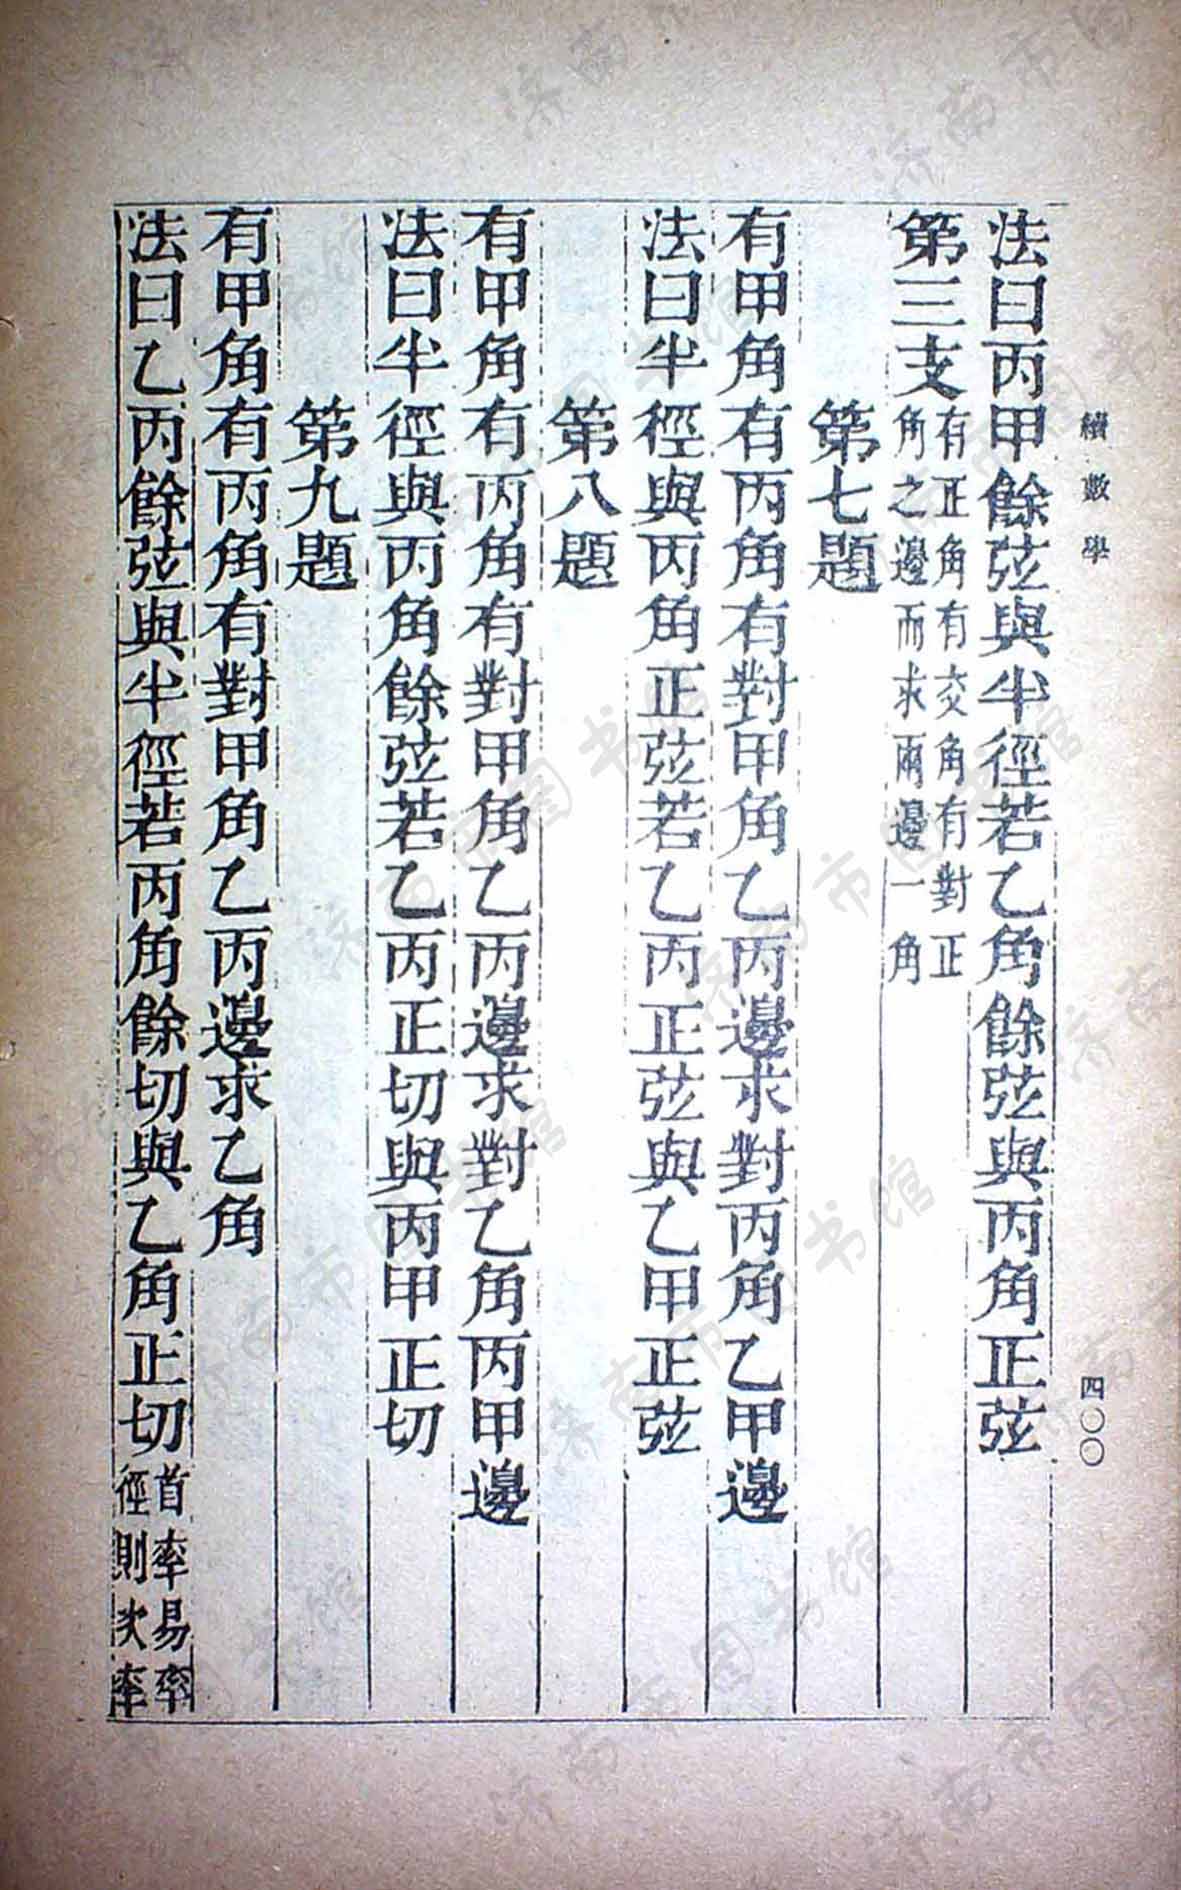 續數學
四〇〇
法曰丙甲餘弦與半徑若乙角餘弦與丙角正弦
第三支有正角有交角有對正
角之邊而求兩邊一角
第七題
有甲角有丙角有對甲角乙丙邊求對丙角乙甲邊
法曰半徑與丙角正弦若乙丙正弦與乙甲正弦
第八題
有甲角有丙角有對甲角乙丙邊求對乙角丙甲邊
法曰半徑與丙角餘弦若乙丙正切與丙甲正切
第九題
有甲角有丙角有對甲角乙丙邊求乙角
法曰乙丙餘弦與半徑若丙角餘切與乙角正切首率易率
徑則次率
济南市图书馆